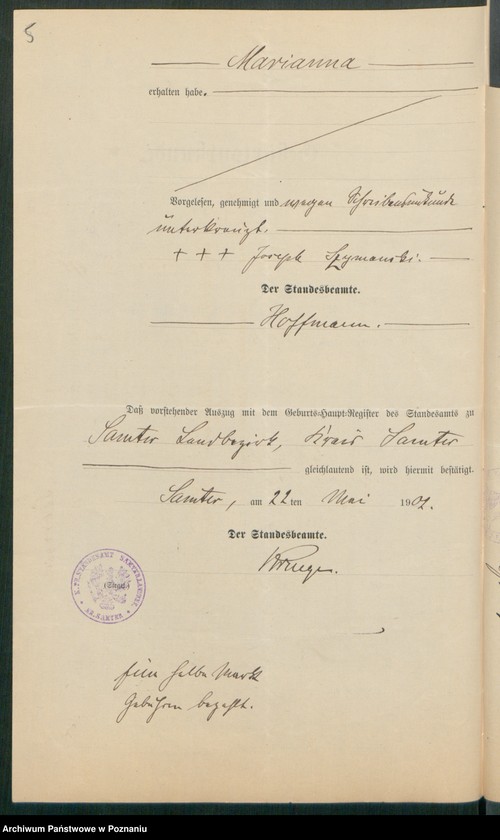 5
Marianna
erhalten habe.
Vorgelesen, genehmigt und wegen Schreibensunkunde
unterkreuzt.
+ + + Joseph Szymanski.
Der Standesbeamte.
Hoffmann.
Daß vorstehender Auszug mit dem Geburts-Haupt-Register des Standesamts zu
Samter Landbezirk, Kreis Samter
gleichlautend ist, wird hiermit bestätigt.
Samter, am 22 ten Mai 1902.
Der Standesbeamte.
K. PR. STANDESAMT SAMTER LANDBEZ.
(Siegel.)
KR. SAMTER
halbe Mark
Gebühren bezahlt.
Archiwum Państwowe w Poznaniu